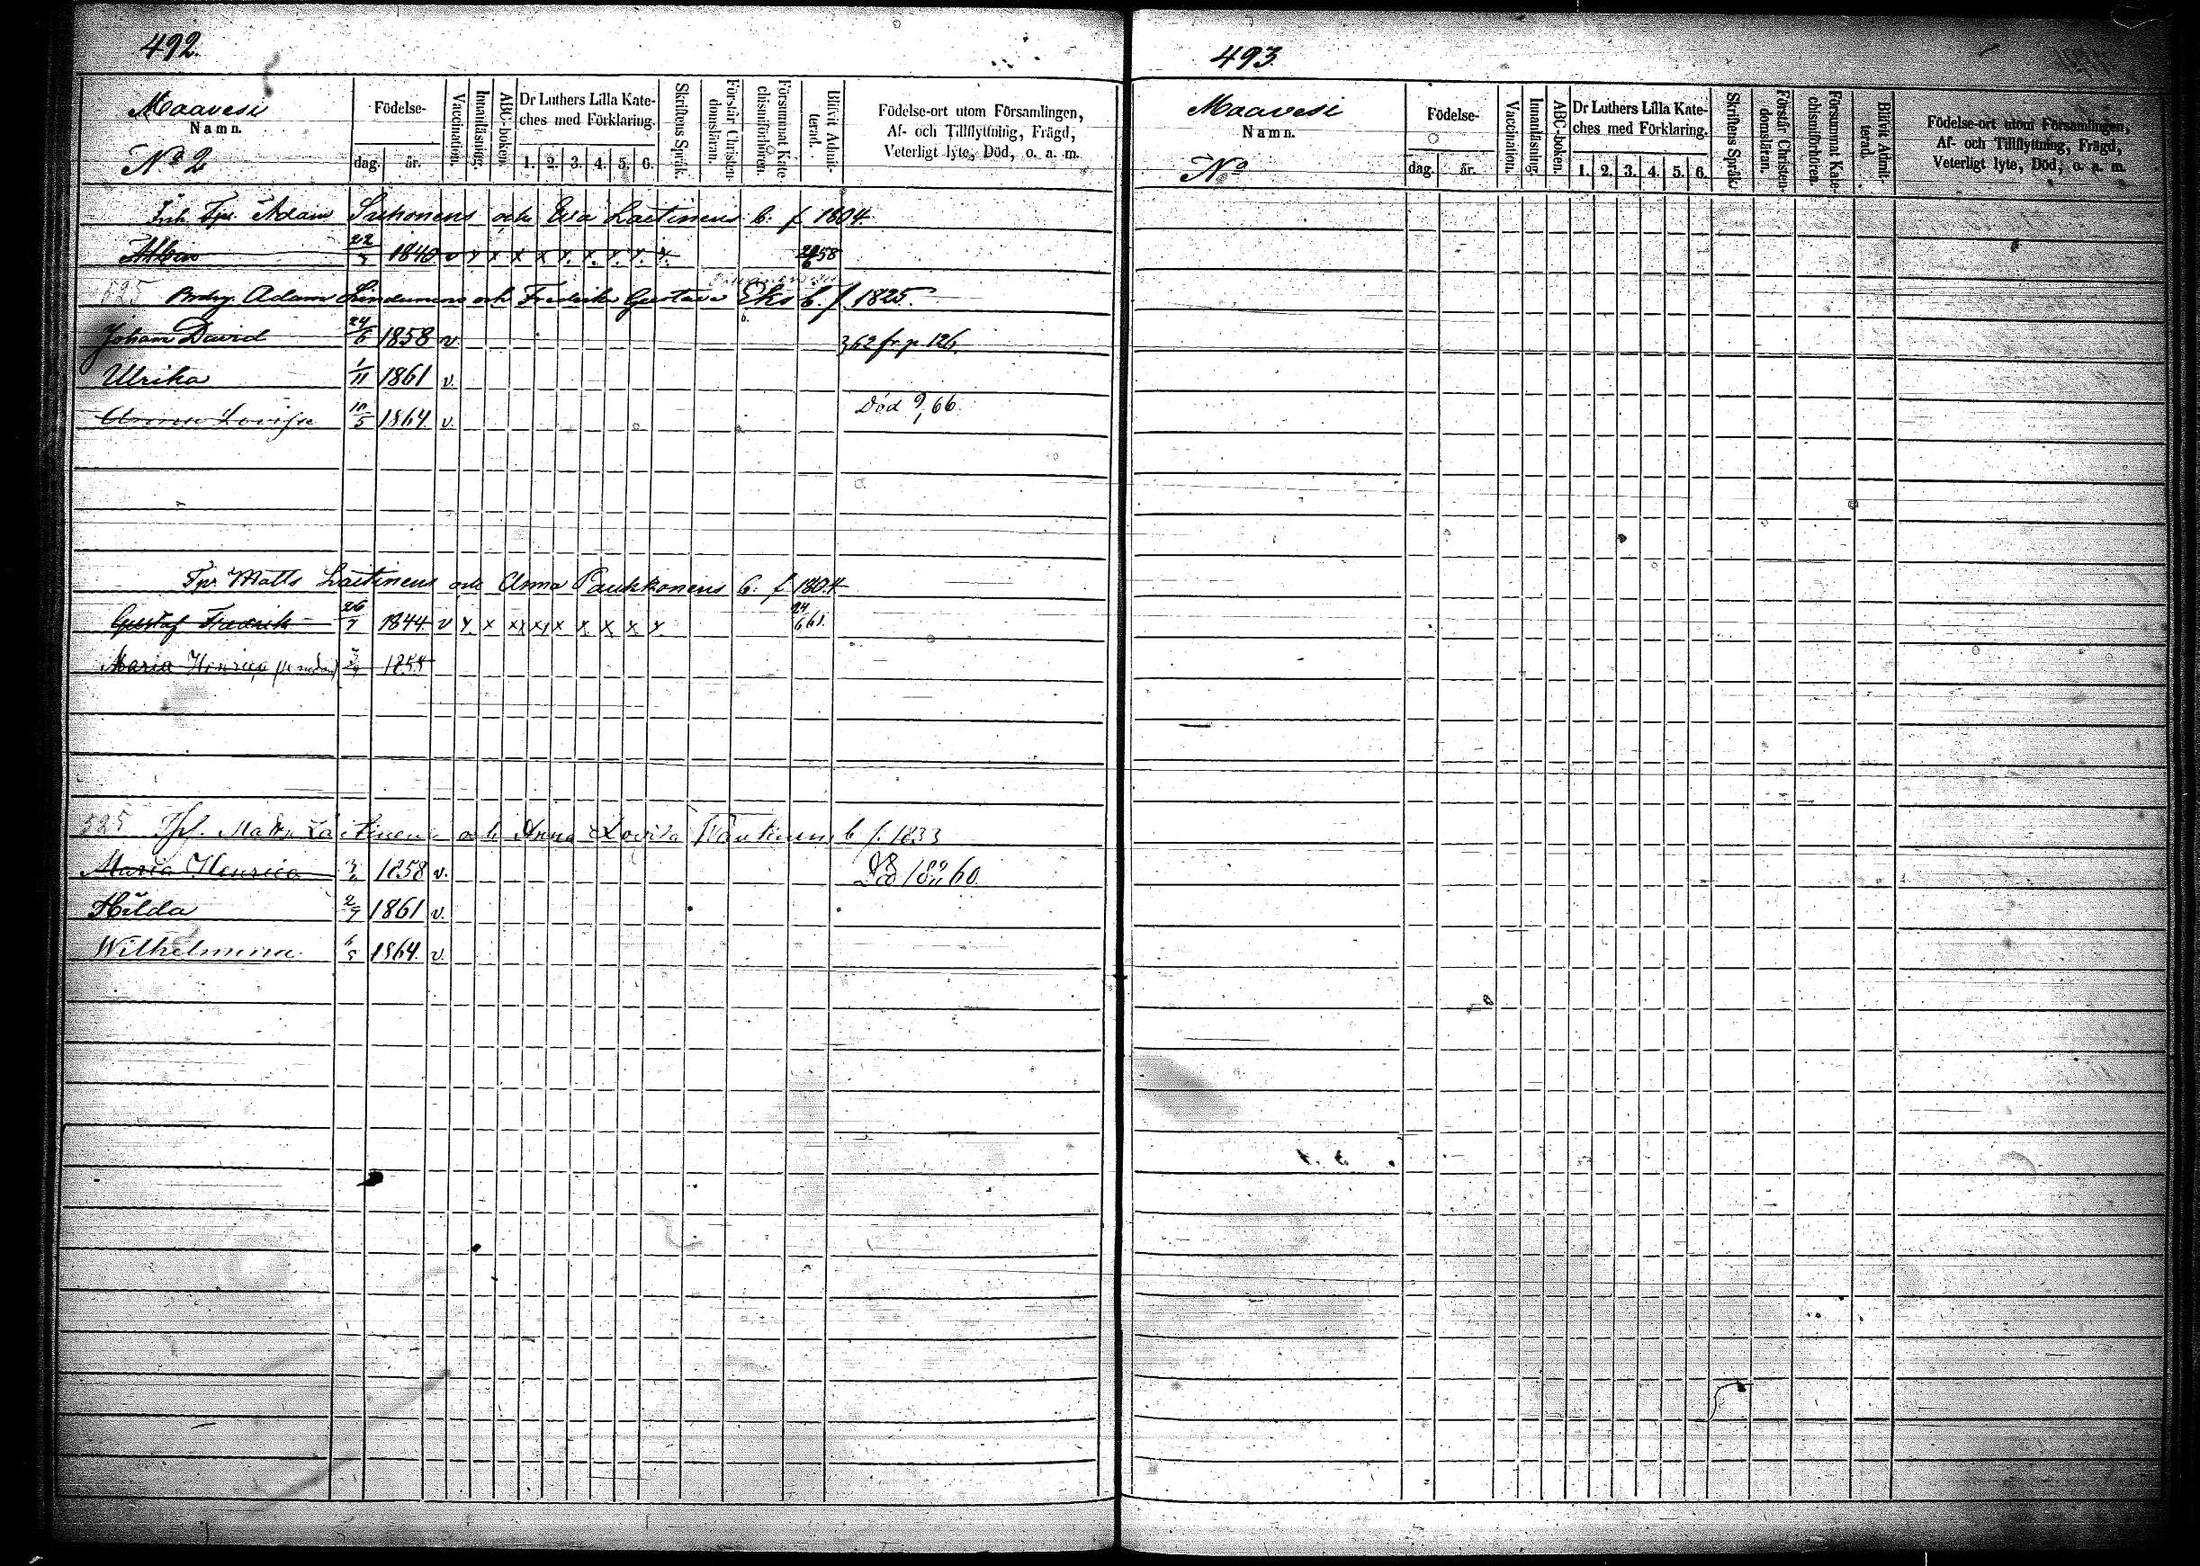 492.
Maavesi
Namn.
No 2
Födelse-
dag.
år.
Vaccination.
Innanläsning.
ABC-boken.
Dr Luthers Lilla Kate-
ches med Förklaring.
1. 2. 3. 4. 5. 6.
Skriftens Språk.
Förstår Christen-
domsläran.
Försummat Kate-
chismiförhören.
Blifvit Admit-
terad.
Födelse-ort utom Församlingen,
Af- och Tillflyttning, Frägd,
Veterligt lyte, Död, o. a. m.
Inh. Tpr Adam Suhonens och Eva Laitinens b. f 1804
Albin 22/7 1840 v x x x x x x x x x 58
525 Brdrg. Adam Lindemens och Fredrika Gustava Eks b. f. 1825.
Johan David 24/6 1858 v. 362 fr. p. 126.
Ulrika 1/11 1861 v.
Anna Lovisa 10/5 1864 v. Död 9/1 66.
Tpr Matts Laitinens och Anna Paukkonens b. f 1804
Gustaf Fredrik 26/7 1844 v x x x x x x x x x 24/6 61.
Maria Henrica (se nedan) 1858
525 Matts Laitinens och Anna Lovisa Paukunens b f. 1833
Maria Henrica 1858 v. Död 60.
Hilda 2/9 1861 v.
Wilhelmina 1864 v.
493.
Maavesi
Namn.
No
Födelse-
dag.
år.
Vaccination.
Innanläsning.
ABC-boken.
Dr Luthers Lilla Kate-
ches med Förklaring.
1. 2. 3. 4. 5. 6.
Skriftens Språk.
Förstår Christen-
domsläran.
Försummat Kate-
chismiförhören.
Blifvit Admit-
terad.
Födelse-ort utom Församlingen,
Af- och Tillflyttning, Frägd,
Veterligt lyte, Död, o. a. m.